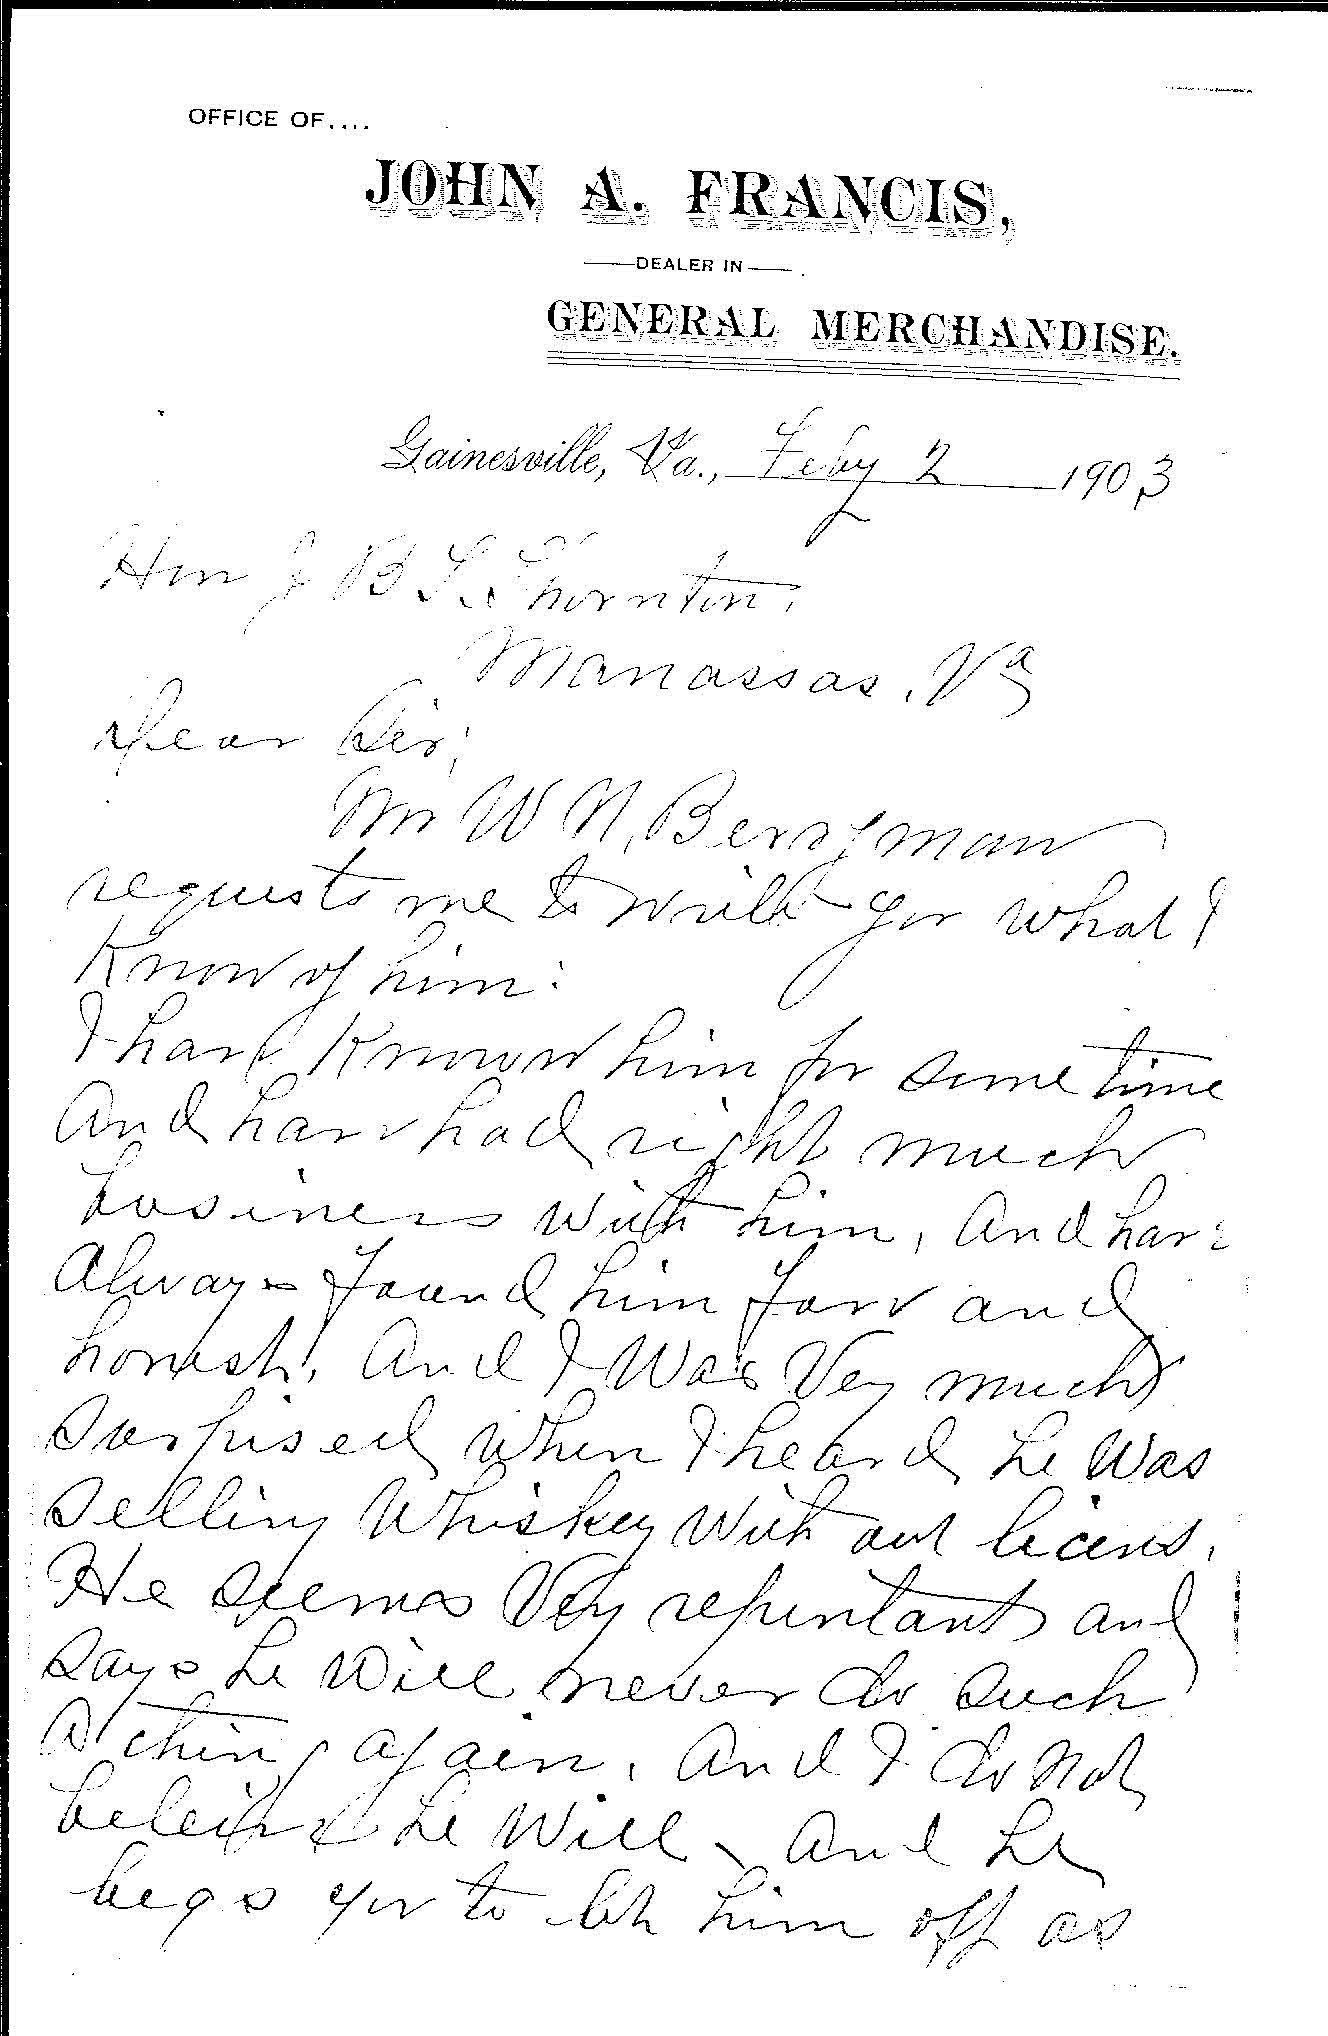 OFFICE OF....
JOHN A. FRANCIS,
DEALER IN
GENERAL MERCHANDISE.
Gainesville, Va., Feby 2 1903
Hon J B T Thornton,
Manassas, Va
Dear Sir;
Mr W N, Berryman
requests me to write you what I
Know of him:
I have Known him for some time
And have had right much
business with him, And have
Always found him fair and
honest, And I Was Very much
surprised when I heard he Was
selling Whiskey With out licens,
He seems Very repentant and
says he Will never do such
a thing again, And I do Not
beleive he Will, And he
begs you to let him off as